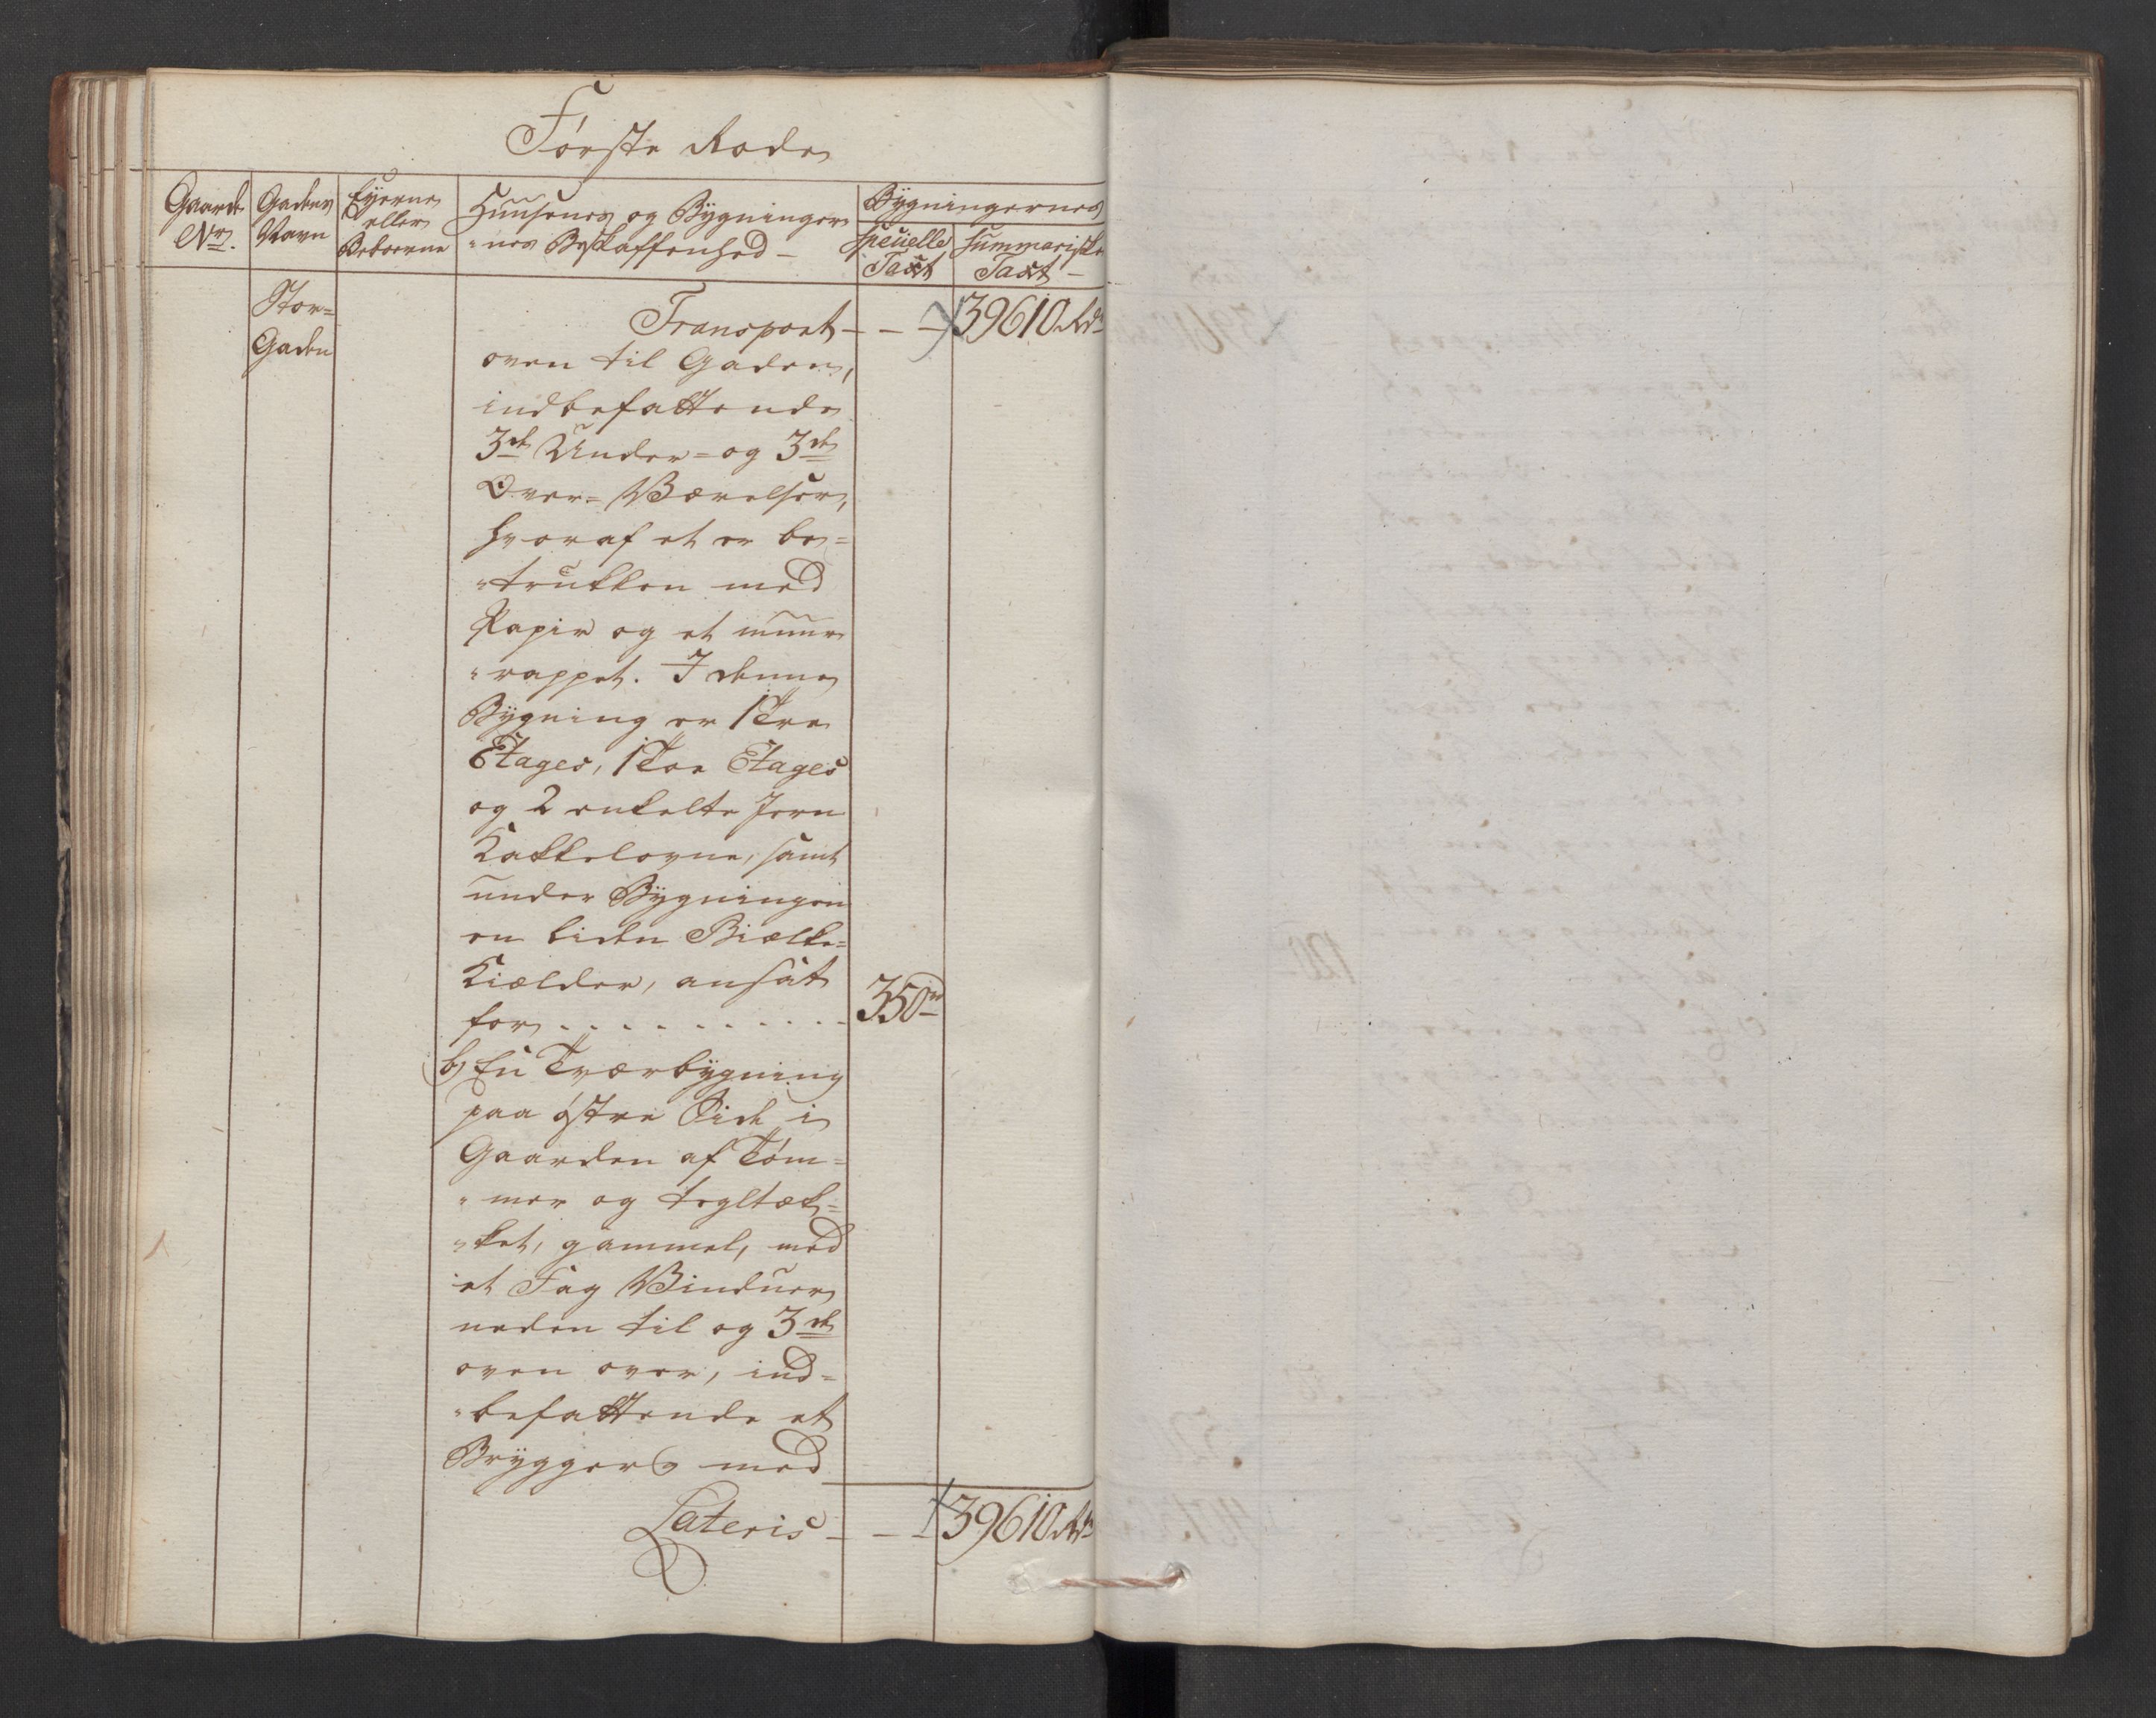 Første Rode
Gaards Nr. Gadens Navn Eyerne eller Beboerne Huusenes og Bygninger- nes Beskaffenhed - Bygningernes Specielle Taxt Summariske Taxt -
Stor=
Gaden
Transport - - - 39610 Rdr
oven til Gaden,
indbefattende
3de Under= og 3de
Over= Værelser,
hvoraf et er be=
"trukken med
Papir og et muur
"rappet. I denne
Bygning er 1 Tre
Etages, 1 Toe Etages
og 2 enkelte Jern
Kakkelovne, samt
under Bygningen
en liden Bielke=
Kielder, ansat
for . . . . . . . . . . 350 rd
b, En Tværbygning
paa østre Side i
Gaarden af Tøm=
"mer og tegltæk=
"ket, gammel, med
et Fag Vinduer
neden til og 3de
oven over, ind=
"befattende et
Bryggers med
Lateris - - - 39610 Rdr